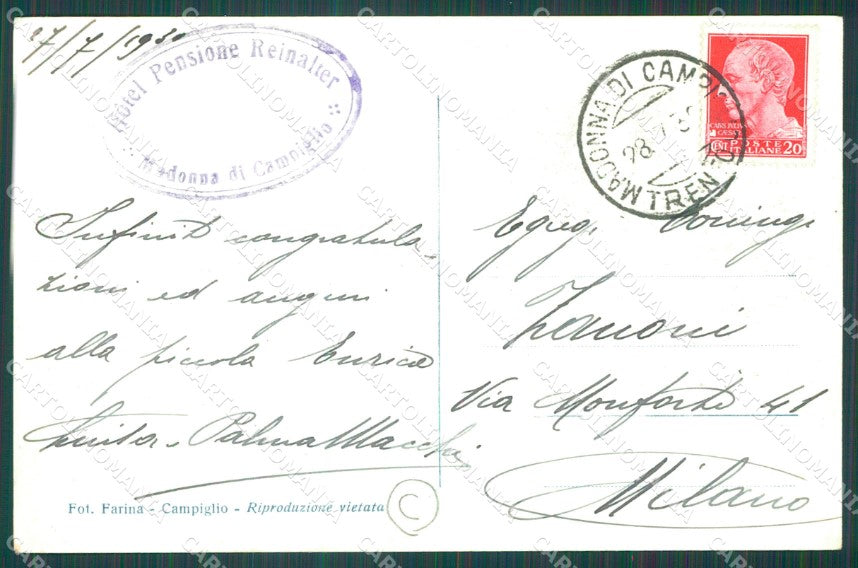 27/7/1930
Hotel Pensione Reinalter
Madonna di Campiglio
MADONNA DI CAMPIGLIO
28.7.3
TRENTO
CAESAR
POSTE
ITALIANE
CENT 20
Infinite congratula-
zioni ed auguri
alla piccola Enrica
Palma Macchi
Egregi Coniugi
Zanoni
Via Monforte 41
Milano
Fot. Farina - Campiglio - Riproduzione vietata
C
CARTOLINOMANIA